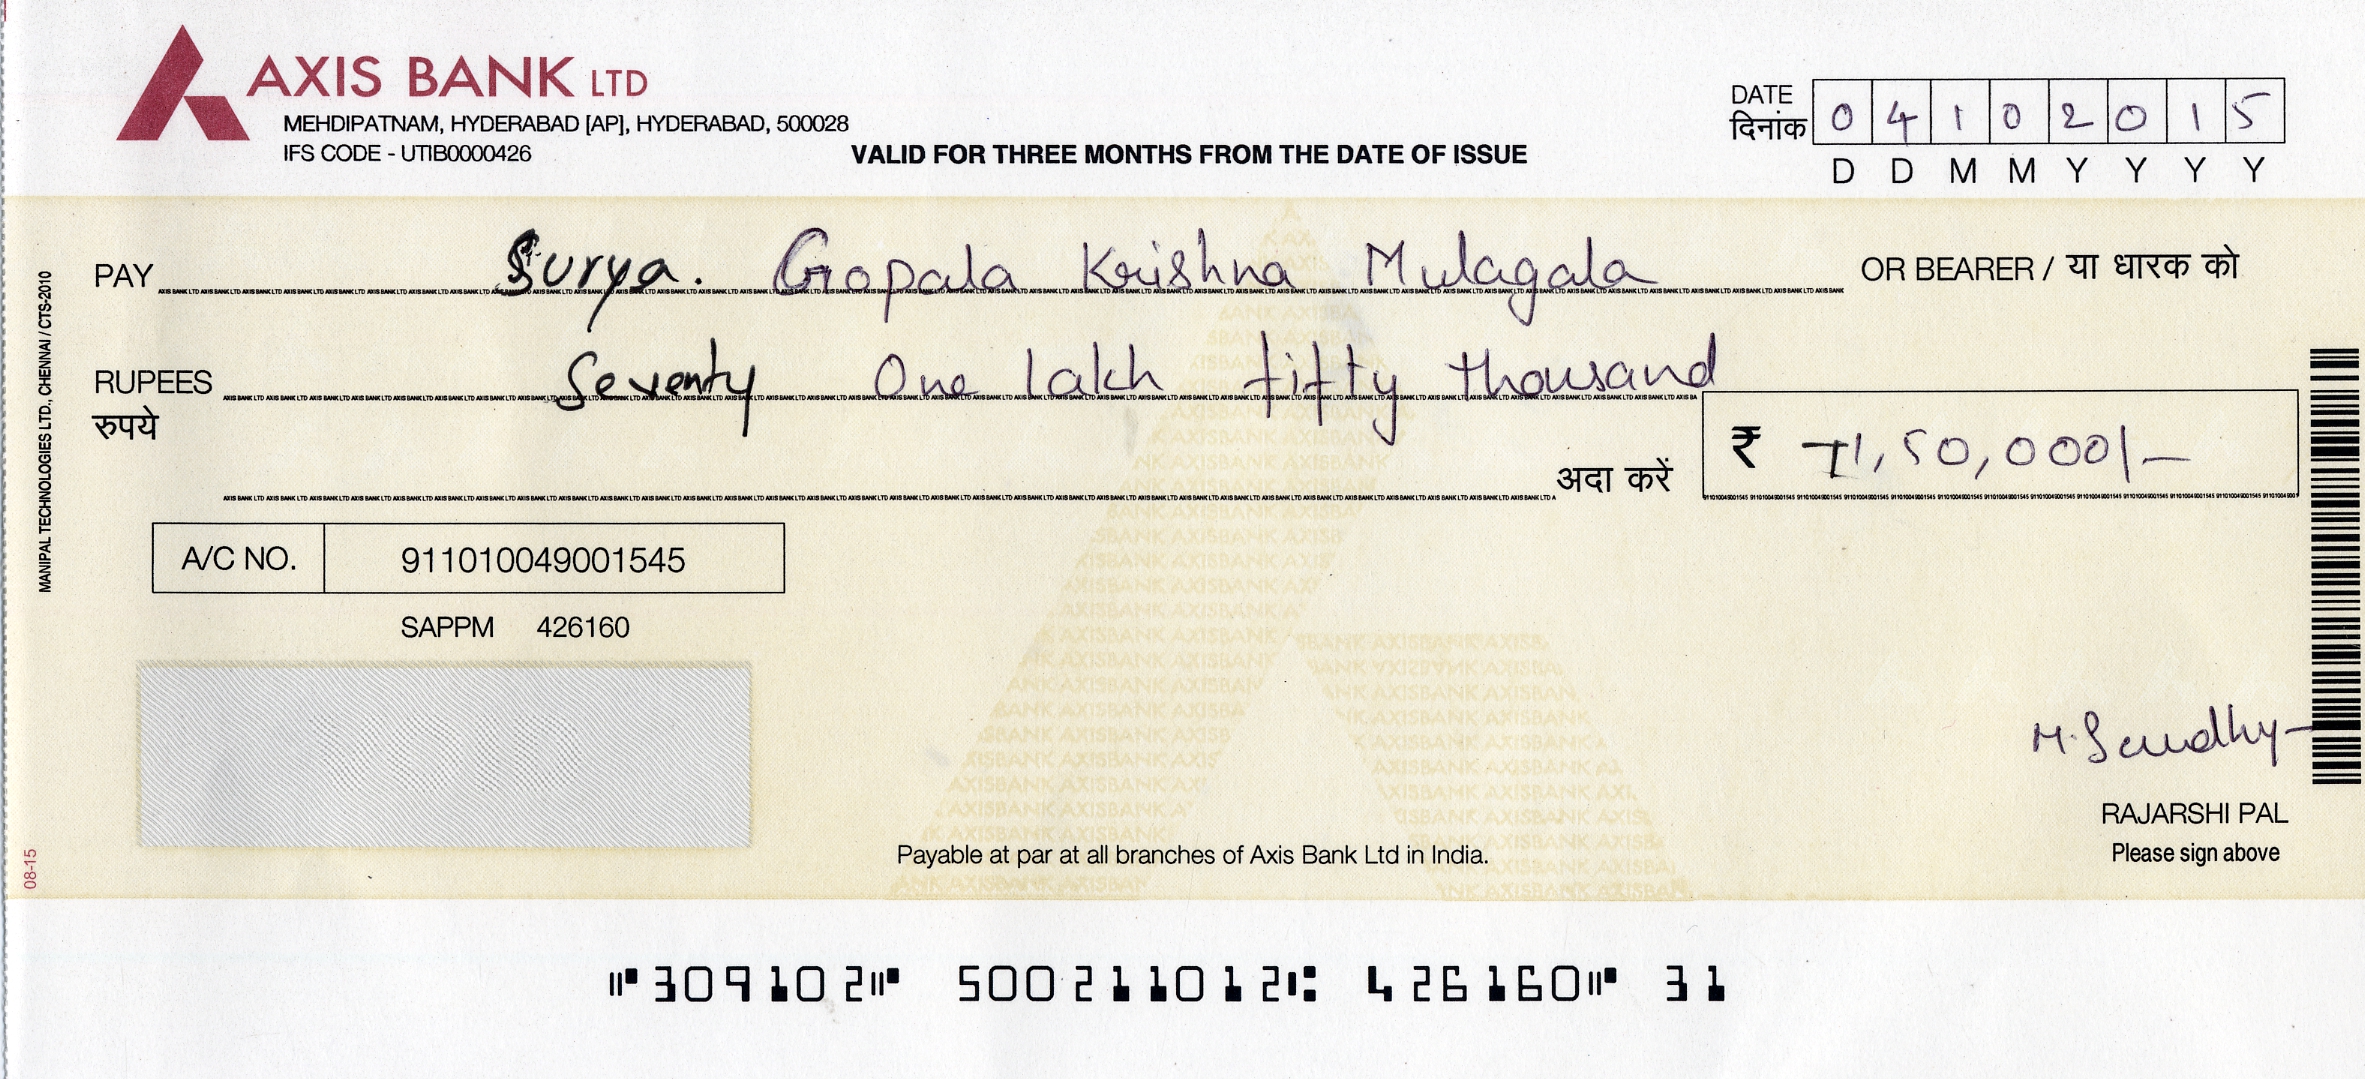 AXIS BANK LTD
MEHDIPATNAM, HYDERABAD [AP], HYDERABAD, 500028
IFS CODE - UTIB0000426
VALID FOR THREE MONTHS FROM THE DATE OF ISSUE
DATE
दिनांक
0 4 1 0 2 0 1 5
D D M M Y Y Y Y
PAY Surya. Gopala Krishna Mulagala OR BEARER / या धारक को
RUPEES Seventy One lakh fifty thousand
रुपये
अदा करें ₹ 71,50,000/-
A/C NO. 911010049001545
SAPPM 426160
VOID
M. Sandhy
RAJARSHI PAL
Please sign above
Payable at par at all branches of Axis Bank Ltd in India.
MANIPAL TECHNOLOGIES LTD., CHENNAI / CTS-2010
08-15
⑈309102⑈ 500211012⑆ 426160⑈ 31